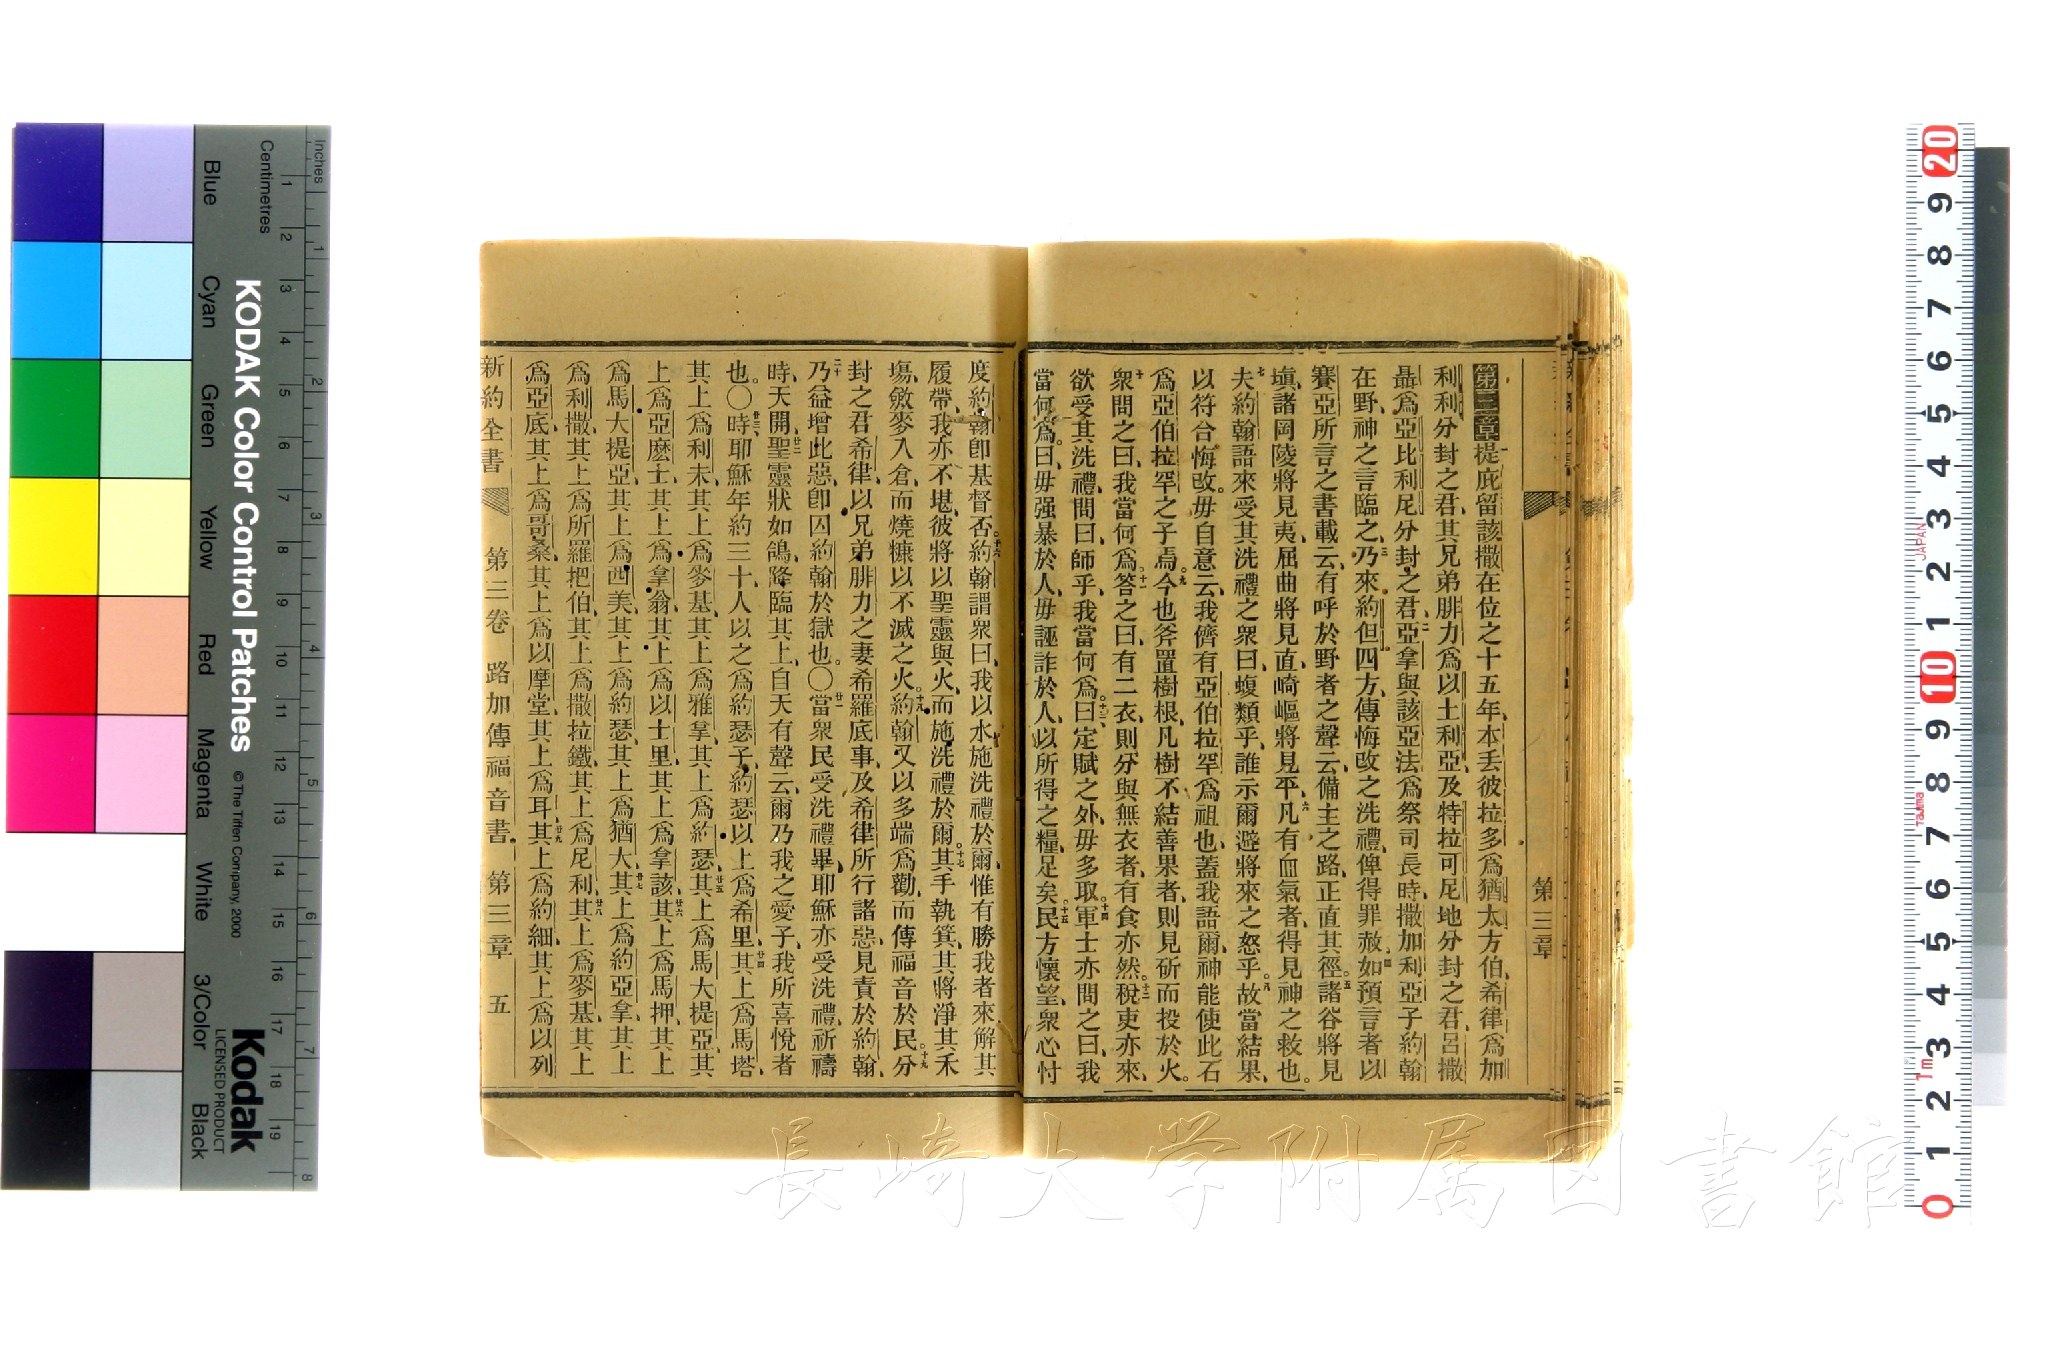 第三章
第三章提庇留該撒在位之十五年、本丢彼拉多爲猶太方伯、希律爲加
利利分封之君、其兄弟腓力爲以土利亞、及特拉可尼地分封之君、呂撒
聶爲亞比利尼分封之君、二亞拿與該亞法爲祭司長時、撒加利亞子約翰
在野、神之言臨之、三乃來約但四方、傳悔改之洗禮、俾得罪赦、四如預言者以
賽亞所言之書載云、有呼於野者之聲云、備主之路、正直其徑。五諸谷將見
塡、諸岡陵將見夷、屈曲將見直、崎嶇將見平、六凡有血氣者、得見神之救也。
七夫約翰語來受其洗禮之衆曰、蝮類乎、誰示爾避將來之怒乎。八故當結果、
以符合悔改。毋自意云、我儕有亞伯拉罕爲祖也、蓋我語爾、神能使此石
爲亞伯拉罕之子焉。九今也斧置樹根、凡樹不結善果者、則見斫而投於火。
十衆問之曰、我當何爲。十一答之曰、有二衣、則分與無衣者、有食亦然。十二稅吏亦來、
欲受其洗禮、問曰、師乎、我當何爲。十三曰、定賦之外、毋多取。十四軍士亦問之曰、我
當何爲。曰、毋强暴於人、毋誣詐於人、以所得之糧足矣。十五民方懷望、衆心忖
度、約翰卽基督否。十六約翰謂衆曰、我以水施洗禮於爾、惟有勝我者來、解其
履帶、我亦不堪、彼將以聖靈與火、而施洗禮於爾。十七其手執箕、其將淨其禾
塲、斂麥入倉、而燒糠以不滅之火。十八約翰又以多端爲勸、而傳福音於民。十九分
封之君希律、以兄弟腓力之妻希羅底事、及希律所行諸惡、見責於約翰、
二十乃益增此惡、卽囚約翰於獄也。〇廿一當衆民受洗禮畢、耶穌亦受洗禮、祈禱
時、天開、廿二聖靈狀如鴿、降臨其上、自天有聲云、爾乃我之愛子、我所喜悅者
也。〇廿三時耶穌年約三十、人以之爲約瑟子、約瑟以上爲希里、廿四其上爲馬塔、
其上爲利未、其上爲麥基、其上爲雅拿、其上爲約瑟、廿五其上爲馬大提亞、其
上爲亞麽士、其上爲拿翁、其上爲以士里、其上爲拿該、廿六其上爲馬押、其上
爲馬大提亞、其上爲西美、其上爲約瑟、其上爲猶大、廿七其上爲約亞拿、其上
爲利撒、其上爲所羅把伯、其上爲撒拉鐵、其上爲尼利、廿八其上爲麥基、其上
爲亞底、其上爲哥桑、其上爲以摩堂、其上爲耳、廿九其上爲約細、其上爲以列
新約全書 第三卷 路加傳福音書 第三章 五
Inches
Centimetres
Blue Cyan Green Yellow Red Magenta White 3/Color Black
KODAK Color Control Patches
© The Tiffen Company, 2000
Kodak
LICENSED PRODUCT
JAPAN
Tajima
1m
長崎大学附属図書館